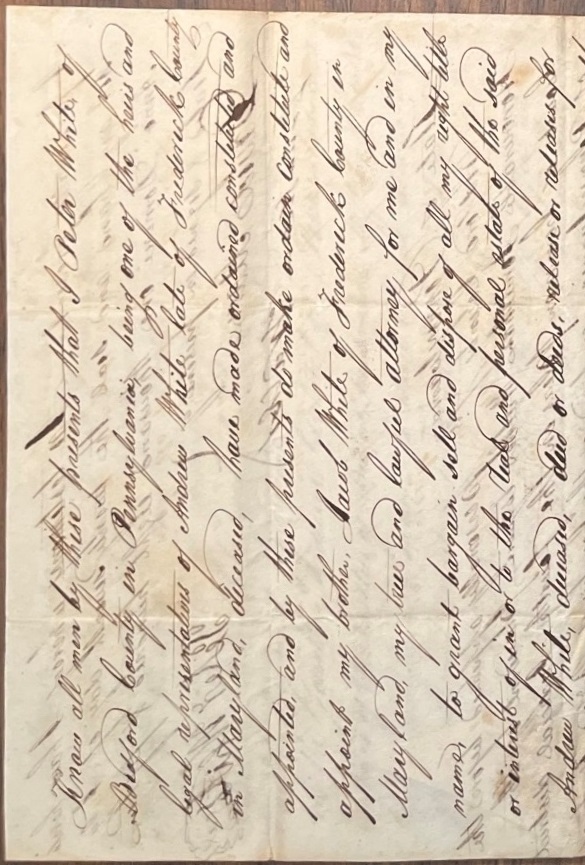 Know all men by these presents that I Peter White of
Bedford County in Pennsylvania, being one of the heirs and
legal representatives of Andrew White late of Frederick County
in Maryland, deceased, have made ordained constituted and
appointed, and by these presents do make ordain constitute and
appoint my brother, Jacob White of Frederick County in
Maryland, my true and lawful attorney for me and in my
name, to grant bargain sell and dispose of all my right title
or interest of in or to the real and personal estate of the said
Andrew White, deceased, deed or deeds, release or releases for